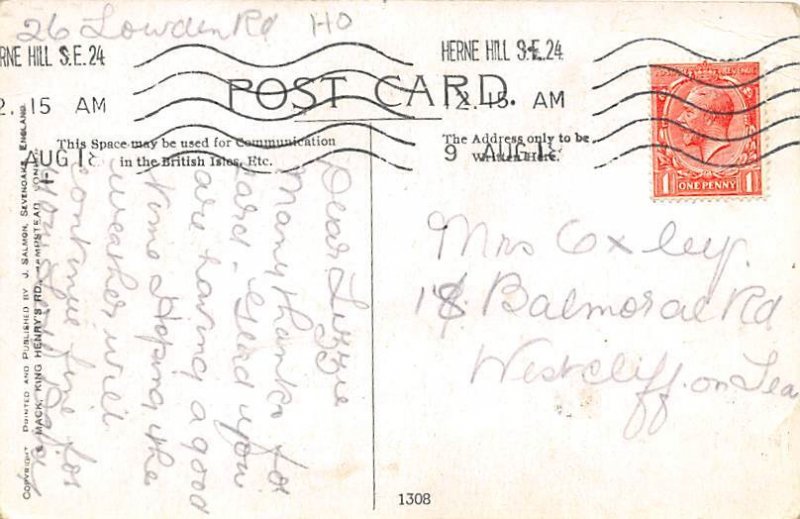 26 Lowden Rd HO
RNE HILL S.E.24
2. 15 AM
AUG 18
HERNE HILL S.E.24
12. 15 AM
9 AUG 18
POST CARD.
This Space may be used for Communication
in the British Isles, Etc.
The Address only to be
Written Here.
1 ONE PENNY 1
Dear Lizzie
Many thanks for
card. Glad you
are having a good
time Hoping the
weather will
continue fine for
Mrs Oxley.
18 Balmoral Rd
Westcliff. on Sea
COPYRIGHT PRINTED AND PUBLISHED BY J. SALMON, SEVENOAKS, ENGLAND.
& MACK, KING HENRY'S RD., HAMPSTEAD, LONDON
1308